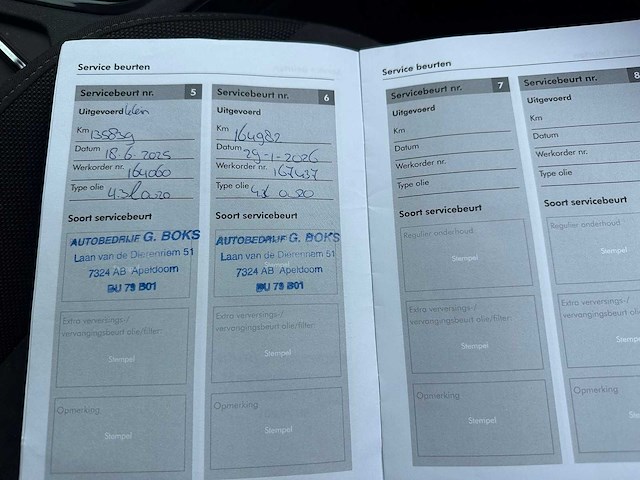 Service beurten
Servicebeurt nr. 5
Uitgevoerd klein
Km 135839
Datum 18-6-2025
Werkorder nr. 164060
Type olie 4.3l 0w20
Soort servicebeurt
AUTOBEDRIJF G. BOKS
Laan van de Dierenriem 51
7324 AB Apeldoorn
BU 79 B01
Extra verversings-/
vervangingsbeurt olie/filter:
Stempel
Opmerking
Stempel
Servicebeurt nr. 6
Uitgevoerd
Km 164982
Datum 29-1-2026
Werkorder nr. 167437
Type olie
Soort servicebeurt
AUTOBEDRIJF G. BOKS
Laan van de Dierenriem 51
7324 AB Apeldoorn
BU 79 B01
Extra verversings-/
vervangingsbeurt olie/filter:
Stempel
Opmerking
Stempel
Service beurten
Servicebeurt nr. 7
Uitgevoerd
Km
Datum
Werkorder nr.
Type olie
Soort servicebeurt
Regulier onderhoud
Stempel
Extra verversings-/
vervangingsbeurt olie/filter:
Stempel
Opmerking
Stempel
Servicebeurt nr. 8
Uitgevoerd
Km
Datum
Werkorder nr.
Type olie
Soort servicebeurt
Regulier onderhoud
Stempel
Extra verversings-/
Opmerking